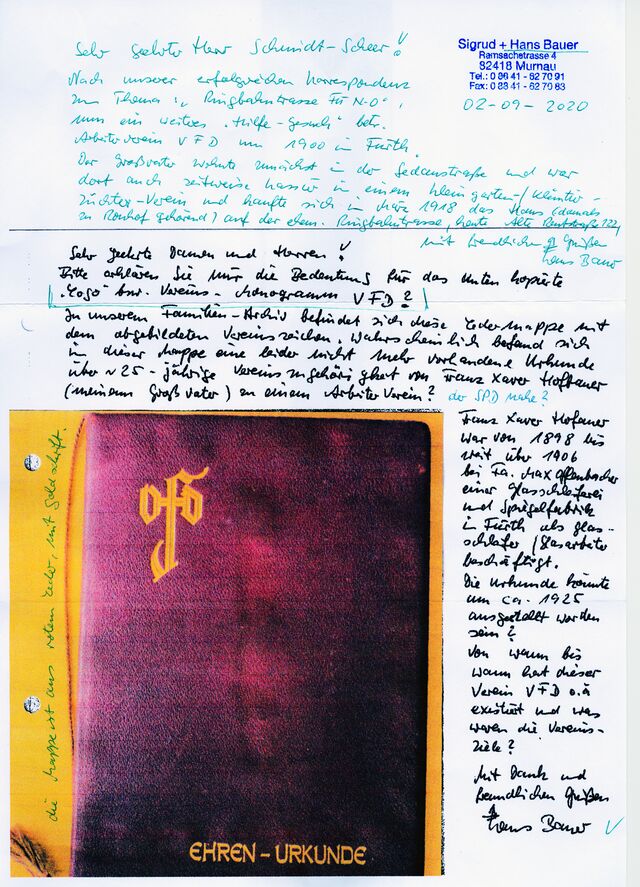 Sehr geehrter Herr Schmidt-Scheer!
Sigrud + Hans Bauer
Ramsachstrasse 4
82418 Murnau
Tel.: 0 88 41 - 62 70 91
Fax: 0 88 41 - 62 70 63
02-09-2020
Nach unserer erfolgreichen Korrespondenz
zum Thema: „Ringbahntrasse Fü N-O",
nun ein weiteres „Hilfe-Gesuch" betr.
Arbeiterverein VFD um 1900 in Fürth.
Der Großvater wohnte zunächst in der Sedanstraße und war
dort auch zeitweise Kassier in einem Kleingarten-/Kleintier-
züchter-Verein und kaufte sich in März 1918 das Haus (damals
zu Ronhof gehörend) auf der ehem. Ringbahntrasse, heute Alte Reutstraße 122,
mit freundlichen Grüßen
Hans Bauer
Sehr geehrte Damen und Herren!
Bitte erklären Sie mir die Bedeutung für das unten kopierte
„Logo" bzw. Vereins-Monogramm VFD?
In unserem Familien-Archiv befindet sich diese Ledermappe mit
dem abgebildeten Vereinszeichen. Wahrscheinlich befand sich
in dieser Mappe eine leider nicht mehr vorhandene Urkunde
über ~25-jährige Vereinszugehörigkeit von Franz Xaver Hofbauer
(meinem Großvater) zu einem Arbeiterverein? der SPD nahe?
die Mappe ist aus rotem Leder, mit Goldschrift.
EHREN-URKUNDE
Franz Xaver
war von 1898 bis
weit über 1906
bei Fa. Max Offenbacher
einer Glasschleiferei
und Spiegelfabrik
in Fürth als Glas-
schleifer/Glasarbeiter
beschäftigt.
Die Urkunde könnte
um ca. 1925
ausgestellt worden
sein?
Von wann bis
wann hat dieser
Verein VFD o.ä
existiert und was
waren die Vereins-
ziele?
Mit Dank und
freundlichen Grüßen
Hans Bauer